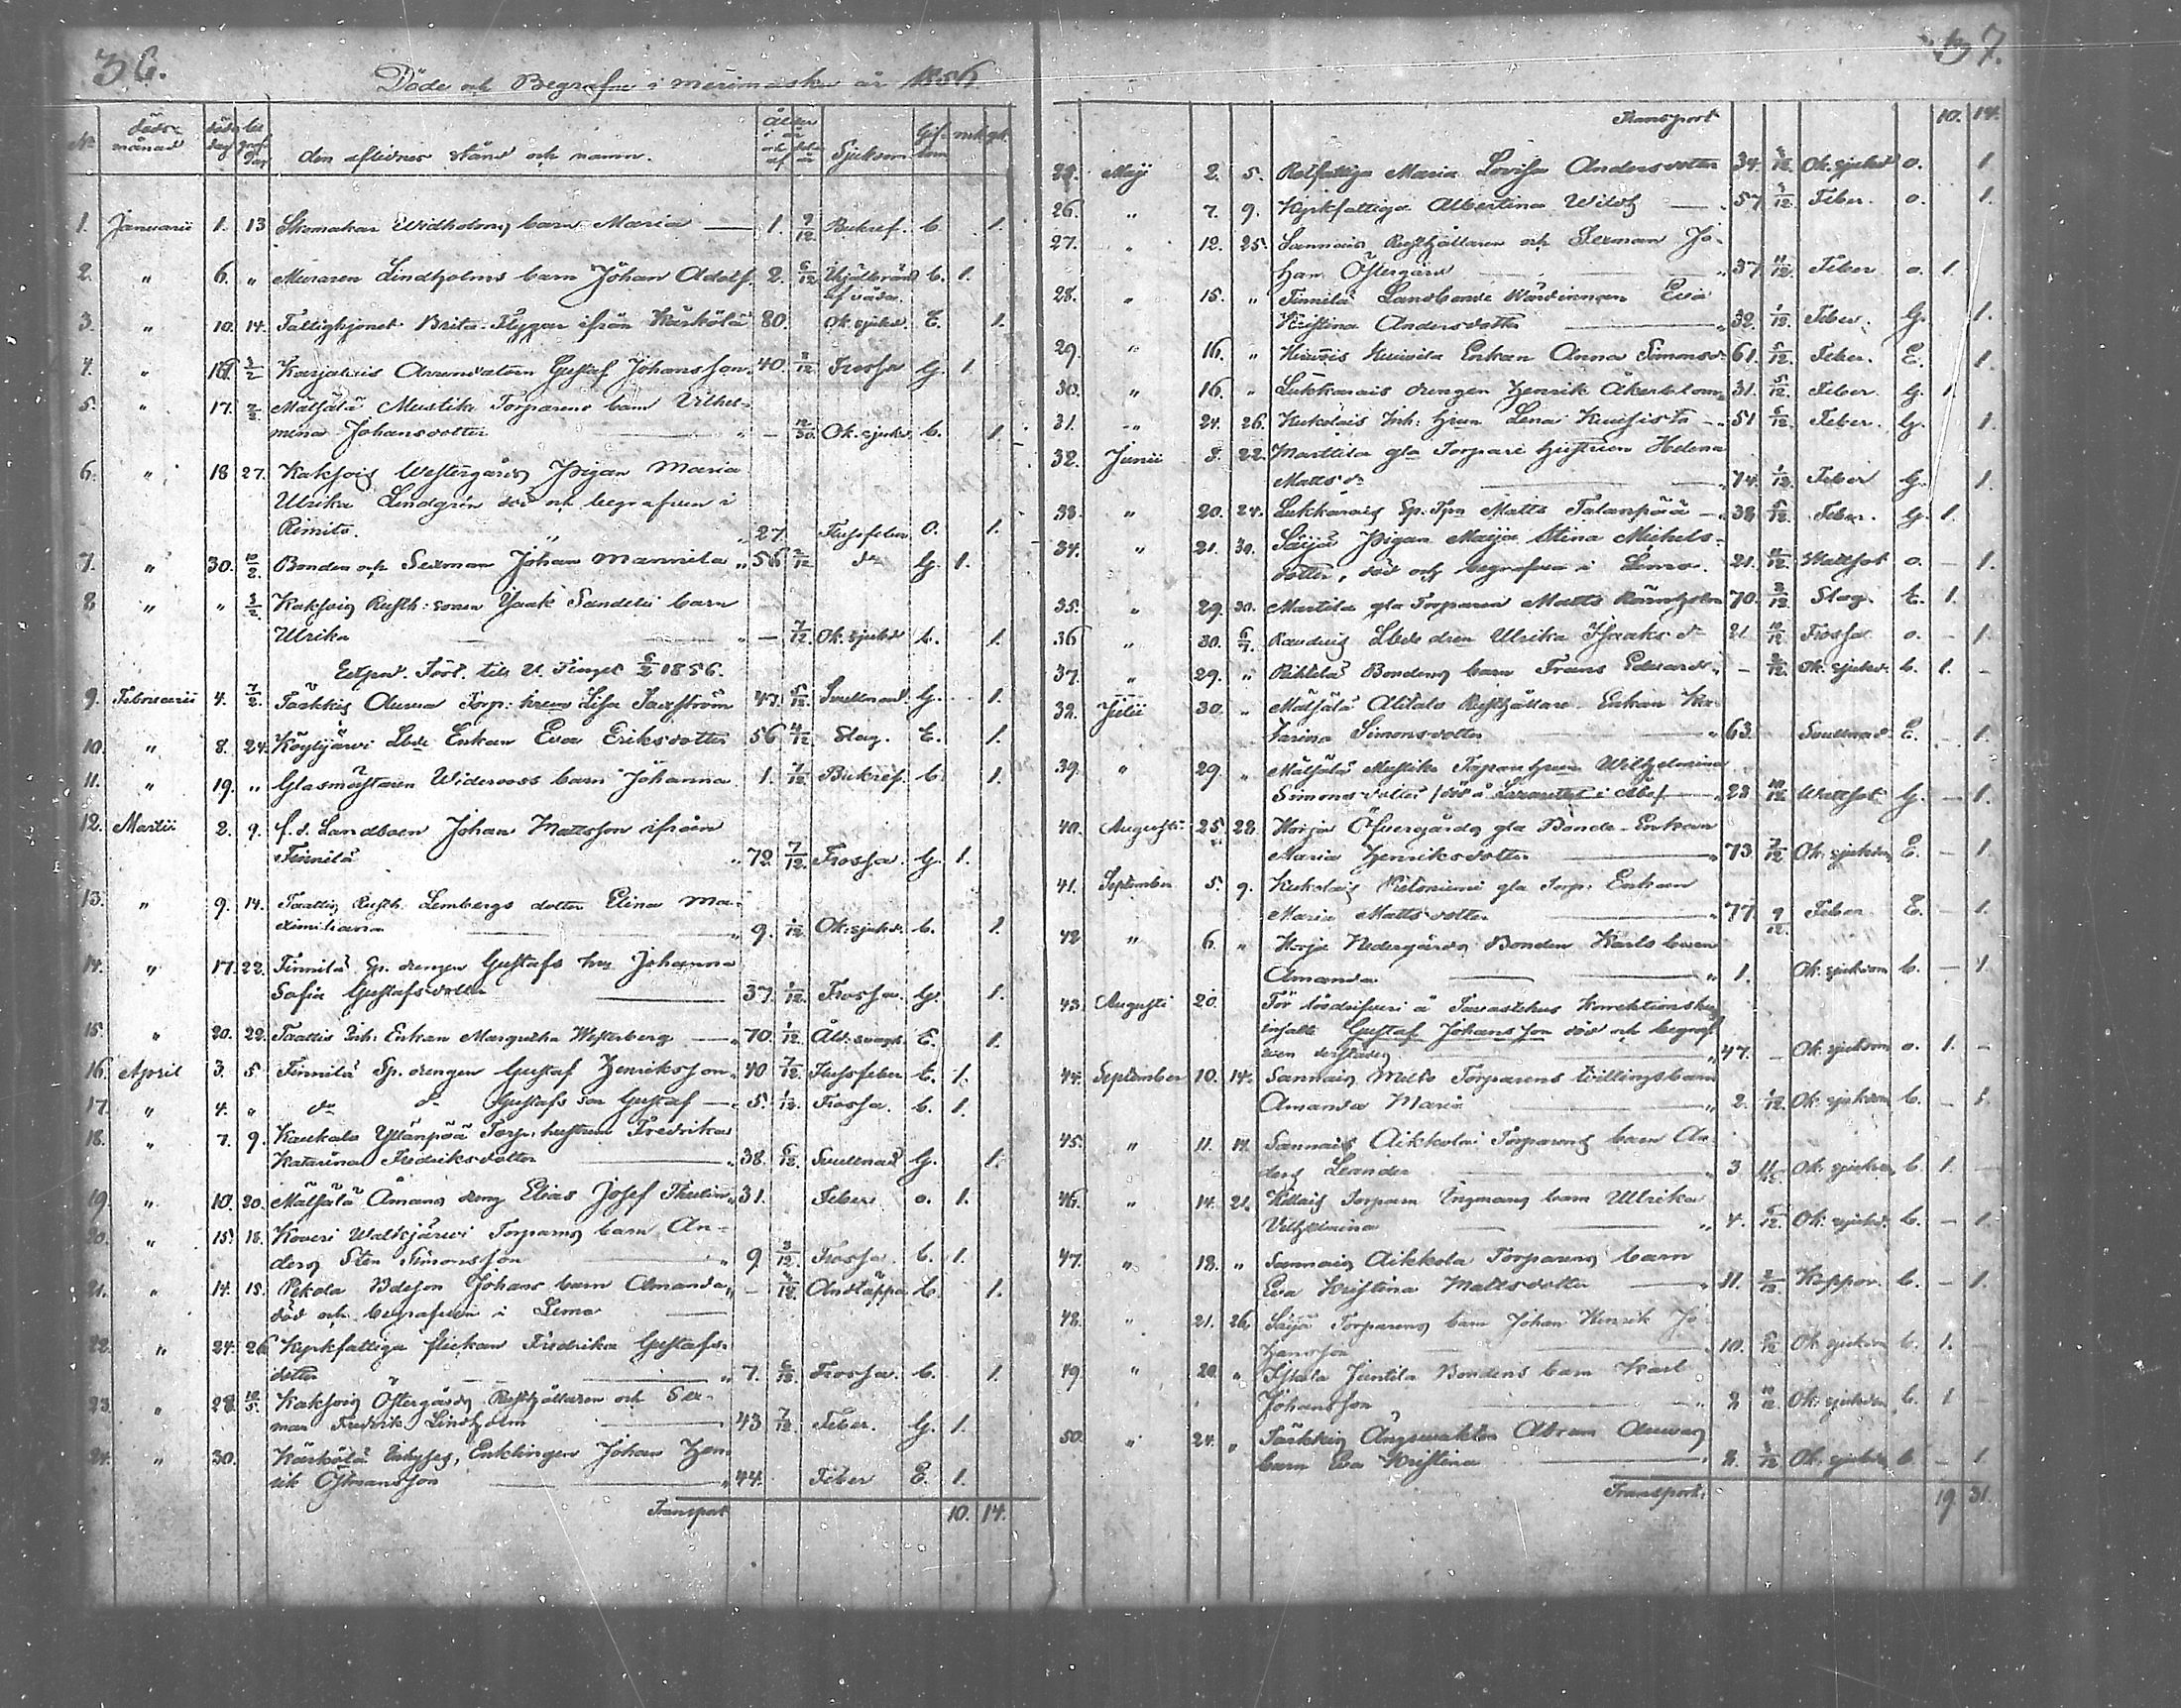 36.
Döde och Begrafne i Merimasku år 1856
No döds-månad döds dag begraf. dag den aflidnes stånd och namn. Ålder i år och delar af år Sjukdom Gif-tom mk. qk.
1. Januarii 1. 13 Skomakar Widholms barn Maria — 1. 9/12 Bukref. b. 1.
2. " 6. " Muraren Lindholms barn Johan Adolf. 2. 6/12 b. 1.
af våda.
3. " 10. 14. Fattighjonet Brita Flygar ifrån Kärkölä 80. Ok. sjukd. E. 1.
4. " 16. 3/2 Karjalais Arrendatorn Gustaf Johansson. 40. 8/12 Frossa G. 1.
5. " 17. 2/2 Mälsälä Mustike Torparens barn Vilhel-
mina Johansdotter " — 12/30 Ok. sjukd. b. 1.
6. " 18 27. Kaksois Westergårds Pigan Maria
Ulrika Lindgrén död och begrafven i
Rimito. " 27. Flussfeber O. 1.
7. " 30. 10/2 Bonden och Sexman Johan Mannila " 56 2/12 do G. 1.
8. " " 3/2 Kaksois Rusth: sonen Isaak Sandelii barn
Ulrika " — 7/12 Ok. sjukd. b. 1.
Extrad. Fört. till V. Tinget 6/2 1856.
9. Februarii 4. 7/2. Särkkis Torp: hrun Lisa Saxström 47. 5/12 Svullnad. G. 1.
10. " 8. 24. Köylijärvi Lbde Enkan Eva Eriksdotter 56 4/12 Slag. E. 1.
11. " 19. " Glasmästaren Wideroos barn Johanna 1. 7/12 Bukref. b. 1.
12. Martii 2. 9. f. d. Landboen Johan Mattsson ifrån
Finnilä " 72. 7/12 Frossa. G. 1.
13. " 9. 14. Taattis Rusth. Lembergs dotter Elina Ma-
ximiliana " 9. 1/12 Ok: sjukd. b. 1.
14. " 17. 22. Finnilä Sp. drengen Gustafs hru Johanna
Sofia Gustafsdotter 37. 1/12 Frossa. G. 1.
15. " 20. 22. Taattis Inh: Enkan Margretha Westerberg — " 70. 1/12 Åld. svagh. E. 1.
16. April 3. 5. Finnilä Sp. drengen Gustaf Henriksson " 40 7/12 Flussfeber E. 1.
17. " 4. " do do Gustafs son Gustaf — " 5. 1/12 Frossa. b. 1.
18. " 7. 9. Kaukalo Yllänpää Torp: hustrun Fredrika
Katarina Fredriksdotter " 38. 6/12 Svullnad G. 1.
19. " 10. 20. Mälsälä Åmans dreng Elias Josef Thulin " 31. Feber o. 1.
20. " 15. 18. Koveri Walkjärvi Torparens barn An-
ders Sten Simonsson " 9 3/12 Frossa. b. 1.
21. " 14. 15. Pekola Bdeson Johans barn Amanda " — 4/12 Andtäppa b. 1.
död och begrafven i Lemo
22. " 24. 26 Kyrkfattiga flickan Fredrika Gustafs-
dotter " 7. 6/12 Frossa. b. 1.
23. " 28. 10/5. Kaksois Östergårds Rusthållaren och Sex-
man Fredrik Lindholm 43 7/12 Feber. G. 1.
24. " 30. Kärkölä Inhyses, Enklingen Johan Hen-
rik Östmansson " 44. Feber E. 1.
Transport 10. 14.
37.
Transport 10. 14.
25. Maji 2. 5. Rotfattiga Maria Lovisa Andersdotter 34. 3/12 Ok. sjukd o. 1.
26. " 7. 9. Kyrkfattiga Albertina — " 57 /12. Feber. o. 1.
27. " 12. 25. Sannais Rusthållaren och Sexman Jo-
han Östergård " 37 11/12 Feber. o. 1.
28. " 15. " Finnilä Landbonde Wärdinnan Eva
Kristina Andersdotter " 32. 1/12. Feber. G. 1.
29. " 16. " Enkan Anna Simonsd. 61. 5/12. Feber. E. 1.
30. " 16. " Lukkarais drengen Henrik Åkerblom 31. 5/12. Feber. G. 1.
31. " 24. 26. Kukolais Inh: hrun Lena Kuusisto — " 51 6/12. Feber. G. 1.
32. Junii 8. 22. Marttila gla Torpare hustrun Helena
Mattsdr " 74. 1/12. Feber G. 1.
33. " 20. 24. Lukkarais Sp. Tpn Matts Talanpää — " 38 5/12. Feber. G. 1.
34. " 21. 30. Särjä Pigan Maija Stina Michels-
dotter, död och begrafven i Lemo. 21. 11/12. Wattsot o. — 1.
35. " 29. 30. Martila gla Torparen Matts Rönnholm 70. 3/12. Slag. E. 1.
36 " 30. 6/7. Raudais Lbde dren Ulrika Isaaksdr 21 10/12 Frossa. o. — 1.
37. " 29. " Riktilä Bondens barn Frans Edvard " — 2/12. Ok. sjukd. b. 1. —
32. Julii 30. " Mälsälä Alitalo Rusthållare Enkan Ka-
tarina Simonsdotter " 63. Svullnad. E. — 1.
39. " 29. " Mälsälä Mustike Torpar hrun Wilhelmina
Simonsdotter (död å Lazarettet i Åbo) — " 28 10/12 Wattsot. G. — 1.
40. Augusti 25. 28. Horja Öfvergårds gla Bonde Enkan
Maria Henriksdotter " 73. 7/12 Ok. sjukdom E. — 1.
41. September 5. 9. Kukolais Wietoniemi gla Torp: Enkan
Maria Mattsdotter " 77. 9/12. Feber E. — 1.
42 " 6. " Horja Nedergårds Bonden Karls barn
Amanda " 1. Ok. sjukdom b. — 1.
43. Augusti 20. För lösdrifveri å Tavastehus Korrektionshus
inhalt Gustaf Johansson död och begraf-
wen derstädes " 47. — Ok. sjukdom o. 1. —
44. September 10. 14. Sannais Torparens twillingsbarn
Amanda Maria " 2. 1/12. Ok. sjukdom b. — 1.
45. " 11. 14. Sannais Aikkola Torparens barn An-
ders Leander " 3. 11/12 Ok. sjukdm b. 1. —
46. " 14. 21. Killais Torparn Ingmans barn Ulrika
Vilhelmina " 4. 6/12. Ok. sjukd. b. — 1.
47. " 18. " Sannais Aikkola Torparens barn
Eva Kristina Mattsdotter " 11. 2/12. Koppor. b. — 1.
48. " 21. 26. Särjä Torparens barn Johan Henrik Jo-
hansson " 10. 8/12 Ok sjukdm b. 1. —
49 " 20. " Iskala Juntila Bondens barn Karl
Johansson " 2 10/12 Ok. sjukdom b. 1 —
50. " 24. " Särkkis Ängsvakten Abram
barn Eva Kristina " 2. 3/12 Ok. sjukdm b. — 1.
Transport: 19. 31.